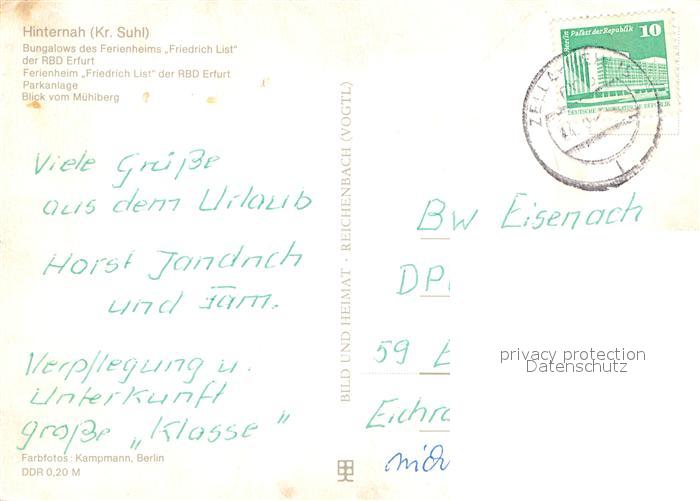 Hinternah (Kr. Suhl)
Bungalows des Ferienheims „Friedrich List"
der RBD Erfurt
Ferienheim „Friedrich List" der RBD Erfurt
Parkanlage
Blick vom Mühlberg
Viele Grüße
aus dem Urlaub
Horst Jandrich
und Fam.
Verpflegung u.
Unterkunft
große „Klasse"
Farbfotos: Kampmann, Berlin
DDR 0,20 M
BILD UND HEIMAT · REICHENBACH (VOGTL)
Berlin Palast der Republik 10
DEUTSCHE DEMOKRATISCHE REPUBLIK
BW Eisenach
59
privacy protection
Datenschutz